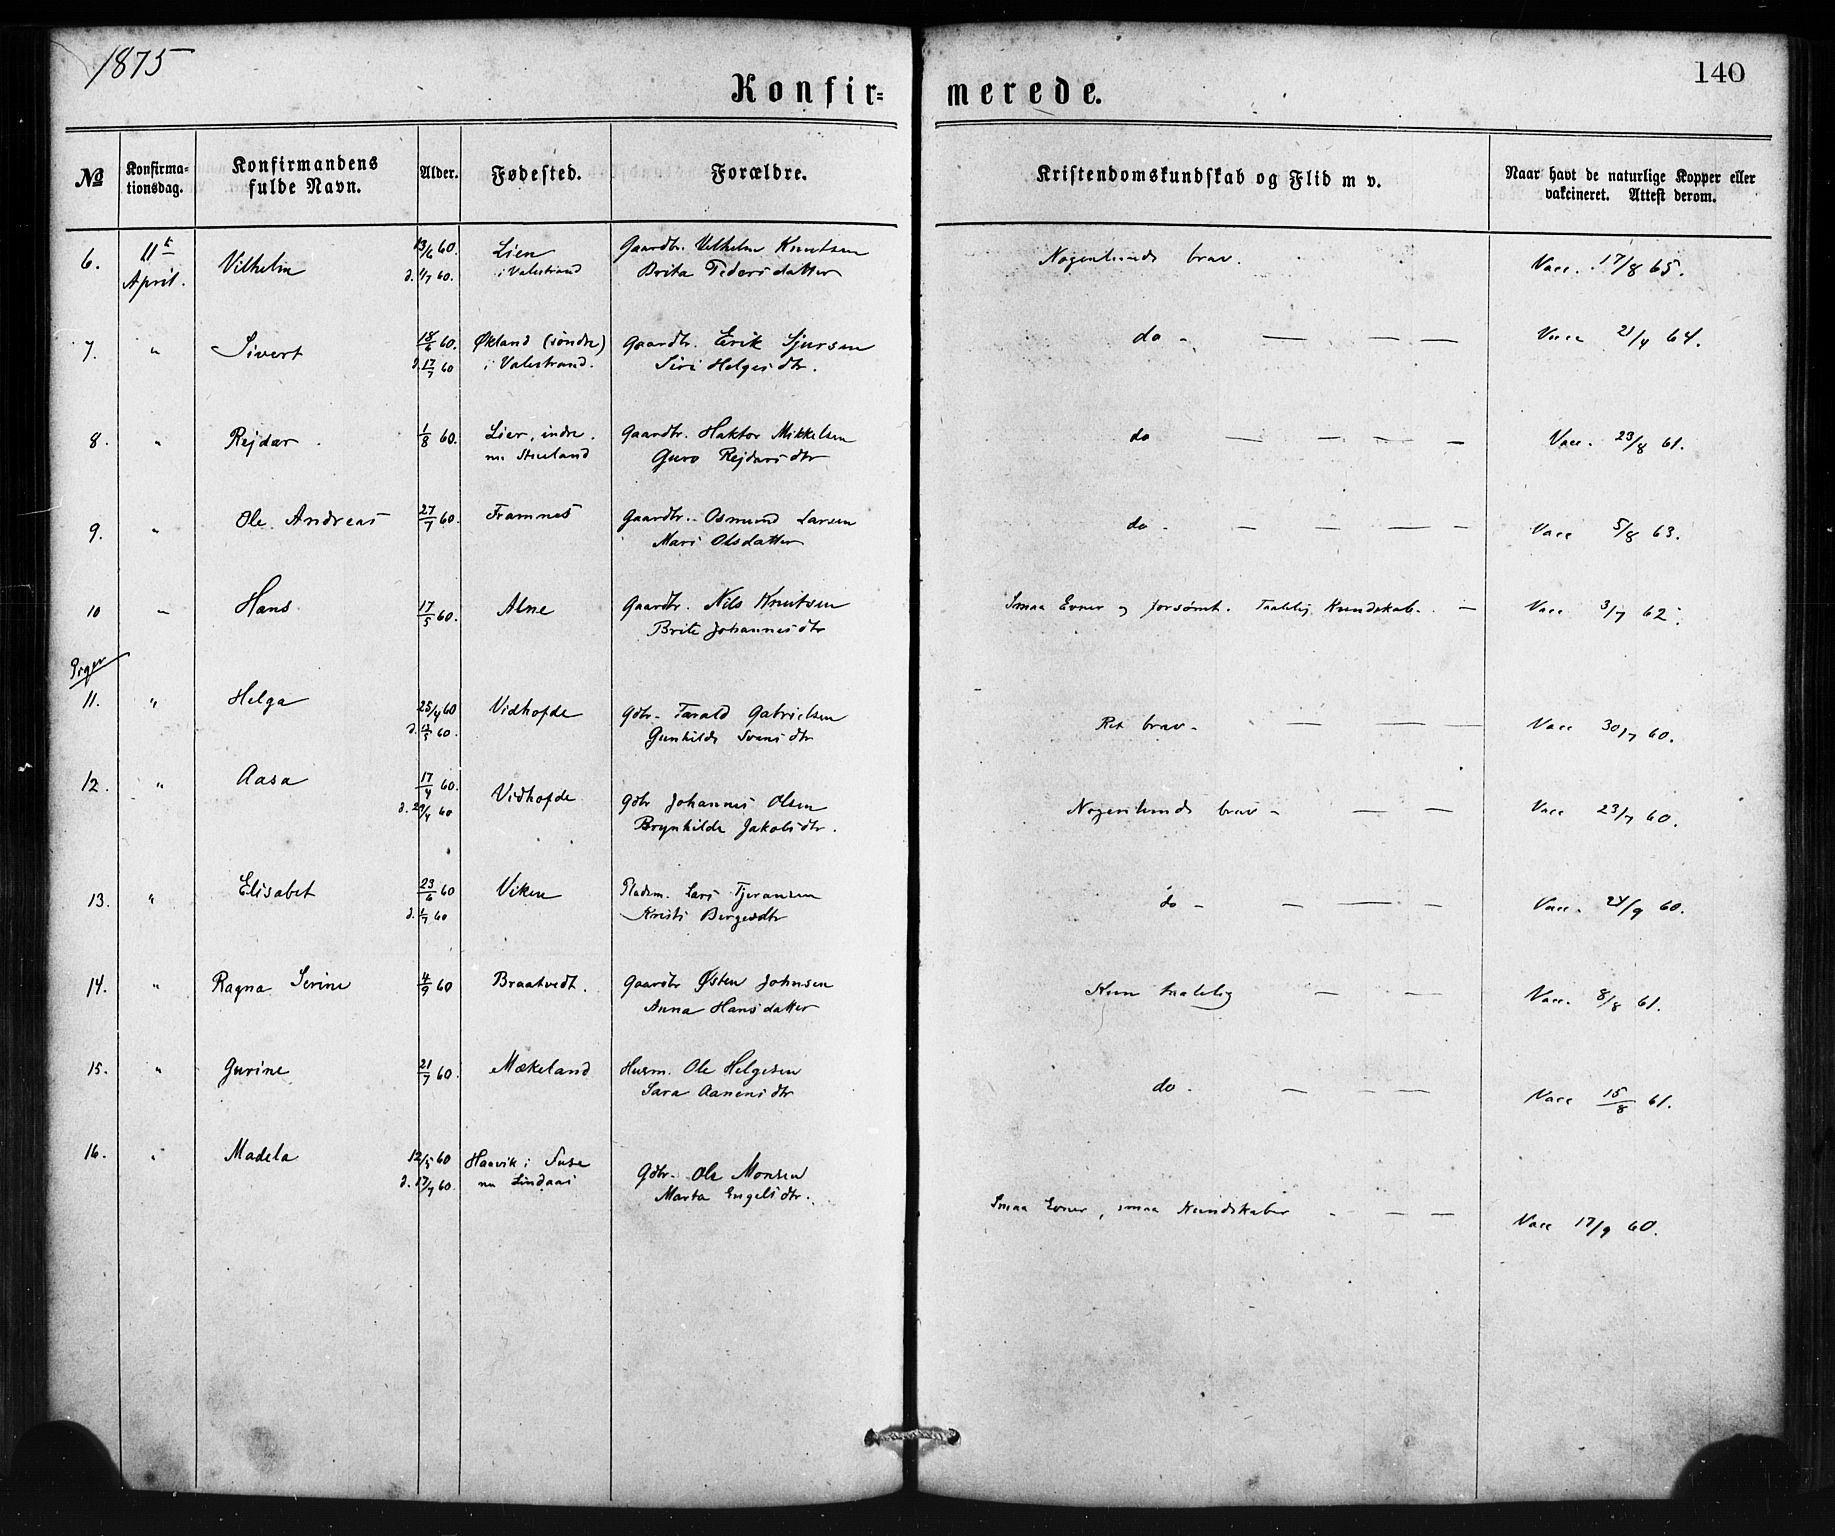 1875
140
Konfir=
merede.
№
Konfirma-
tionsdag.
Konfirmandens
fulde Navn.
Alder.
Fødested.
Forældre.
Kristendomskundskab og Flid m v.
Naar havt de naturlige Kopper eller
vakcineret. Attest derom.
6. 11te Vilhelm 13/6 60. Lien Gaardbr. Vilhelm Knutsen Nogenlunde brav. Vacc. 17/8 65.
April. d. 1/7 60. i Valestrand Brita Pedersdatter
7. " Sivert 18/6 60. Økland (søndre) Gaardbr. Erik Sjursen do - — — — Vacc 21/4 64.
d. 17/7 60 i Valestrand. Siri Helgesdtr.
8. " Rejdar 1/8 60. Lier, indre. Gaardbr. Haktor Mikkelsen do — — — — Vacc. 23/8 61.
nu Stueland Guro Rejdarsdtr
9. " Ole Andreas 27/7 60. Framnes Gaardbr. Osmund Larsen do - — — — — Vacc 5/8 63.
Mari Olsdatter
10 " Hans 17/5 60. Alne Gaardbr. Nils Knutsen Smaa Evner og forsømt. Taalelig Kundskab. — Vacc 3/7 62.
Brite Johannesdtr
Piger
11. " Helga 25/4 60 Vidhofde Gdbr. Tarald Gabrielsen Ret brav - — — — Vacc 30/7 60.
d. 13/5 60. Gunhilde Svensdtr
12. " Aasa 17/4 60. Vidhofde Gdbr Johannes Olsen Nogenlunde brav - — — Vacc 23/7 60.
d. 29/4 60 Brynhilde Jakobsdtr.
13. " Elisabet 23/6 60 Viken Pladsm. Lars Tjeransen do - — — — Vacc. 24/9 60.
d. 1/7 60 Kristi Bergesdtr
14. " Ragna Serine 4/9 60 Braatvedt. Gaardbr Østen Johnsen Kun taalelig — — Vacc. 8/8 61.
Anna Hansdatter
15. " Gurine 21/7 60. Mækeland Husm. Ole Helgesen do - — — — Vacc 15/8 61.
Sara Aanensdtr
16. " Madela 12/5 60 Haavik i Suse Gdbr. Ole Monsen Smaa Evner, smaa Kundskaber - — — Vacc 17/9 60.
d. 17/7 60. nu Lindaas Marta Engelsdtr.